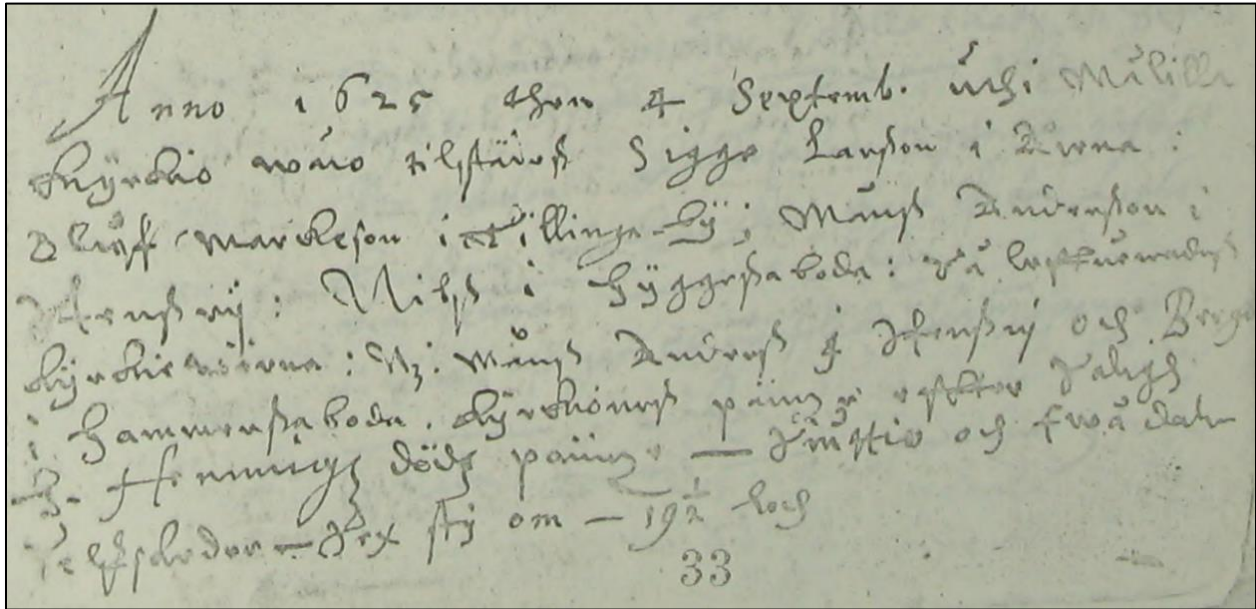 Anno 1625 then 4 Septemb. uthi Målilla
kyrckio woro tilstädes Sigge Larsson i Årena:
Oluff Marckeson i Tillinga by; Måns Andersson i
Stensrÿ: Nils i Hyggesaboda: Så leffrerades
kyrckie : Nz: Måns Anders i Stensrÿ och Berge
i Hammersaboda. kyrckiones päng effter Salig
H. Hemmings dödh päng — Siuttio och twå daler
— Sex sty om — 19½ lodh
33